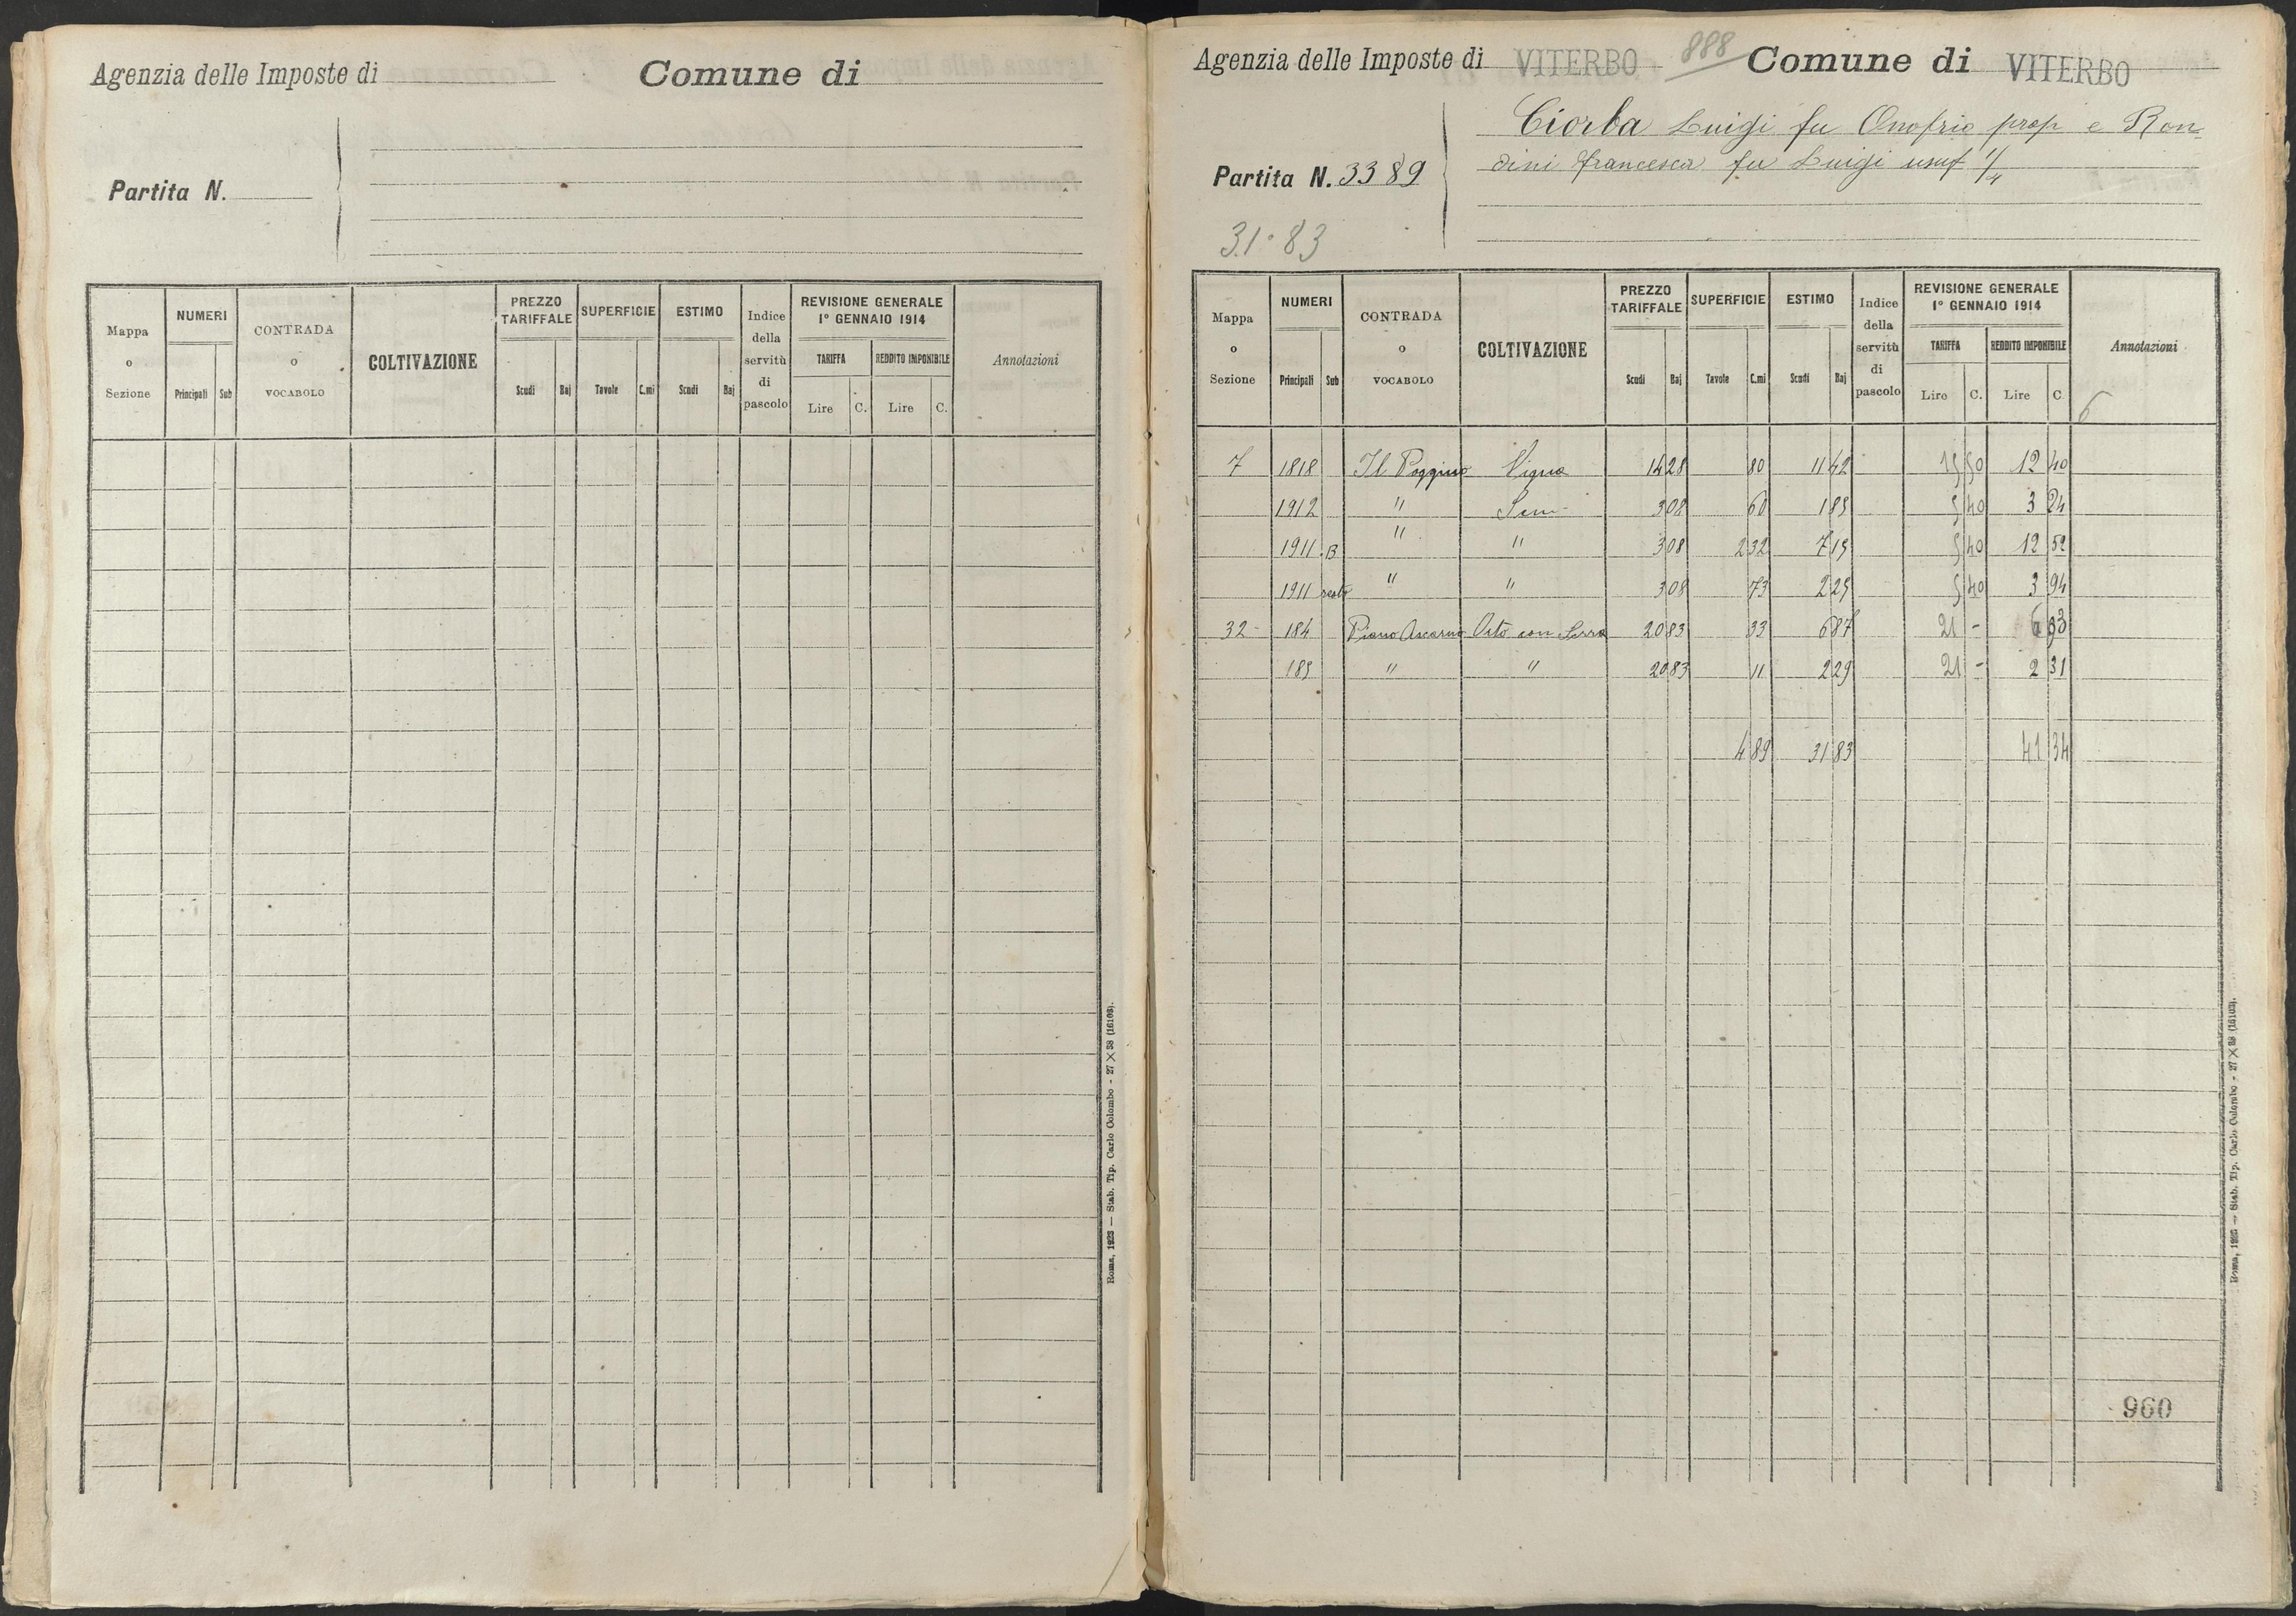 Agenzia delle Imposte di Comune di
Partita N.
Mappa o Sezione NUMERI Principali Sub CONTRADA o VOCABOLO COLTIVAZIONE PREZZO TARIFFALE Scudi Baj SUPERFICIE Tavole C.mi ESTIMO Scudi Baj Indice della servitù di pascolo REVISIONE GENERALE 1° GENNAIO 1914 TARIFFA Lire C. REDDITO IMPONIBILE Lire C. Annotazioni
Roma, 1923 — Stab. Tip. Carlo Colombo - 27 × 38 (16103).
Agenzia delle Imposte di VITERBO 888 Comune di VITERBO
Ciorba Luigi fu Onofrio prop e Ron-
dini Francesca fu Luigi usuf 1/4
Partita N. 3389
31.83
Mappa o Sezione NUMERI Principali Sub CONTRADA o VOCABOLO COLTIVAZIONE PREZZO TARIFFALE Scudi Baj SUPERFICIE Tavole C.mi ESTIMO Scudi Baj Indice della servitù di pascolo REVISIONE GENERALE 1° GENNAIO 1914 TARIFFA Lire C. REDDITO IMPONIBILE Lire C Annotazioni
6
7 1818 Il Poggino Vigna 14 28 80 11 42 15 50 12 40
1912 " Sem 3 08 60 1 85 5 40 3 24
1911 B " " 3 08 2 32 7 15 5 40 12 52
1911 resto " " 3 08 73 2 25 5 40 3 94
32 - 184 Piano Ascarano Orto con 20 83 33 6 87 21 - 6 93
185 " " 20 83 11 2 29 21 - 2 31
4 89 31 83 41 34
960
Roma, 1923 — Stab. Tip. Carlo Colombo - 27 × 38 (16103).